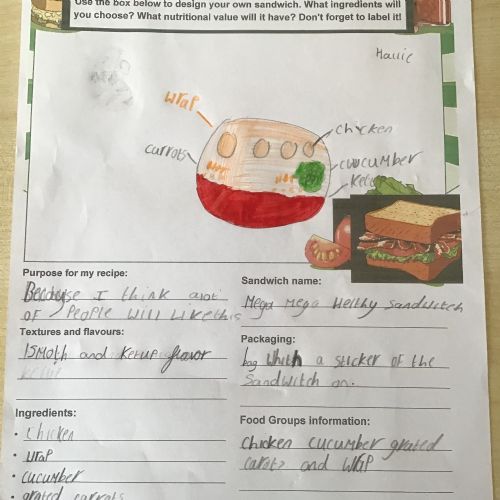 Use the box below to design your own sandwich. What ingredients will
you choose? What nutritional value will it have? Don't forget to label it!
wrap
chicken
carrots
cucumber
Purpose for my recipe:
Because I think alot
of People will Like this
Textures and flavours:
smoth and Ketup flavor
Ingredients:
• chicken
• wrap
• cucumber
• grated carrots
Sandwich name:
Mega Mega Helthy Sandwitch
Packaging:
bag whith a sticker of the
Sandwitch on.
Food Groups information:
Chicken cucumber grated
carots and wrap